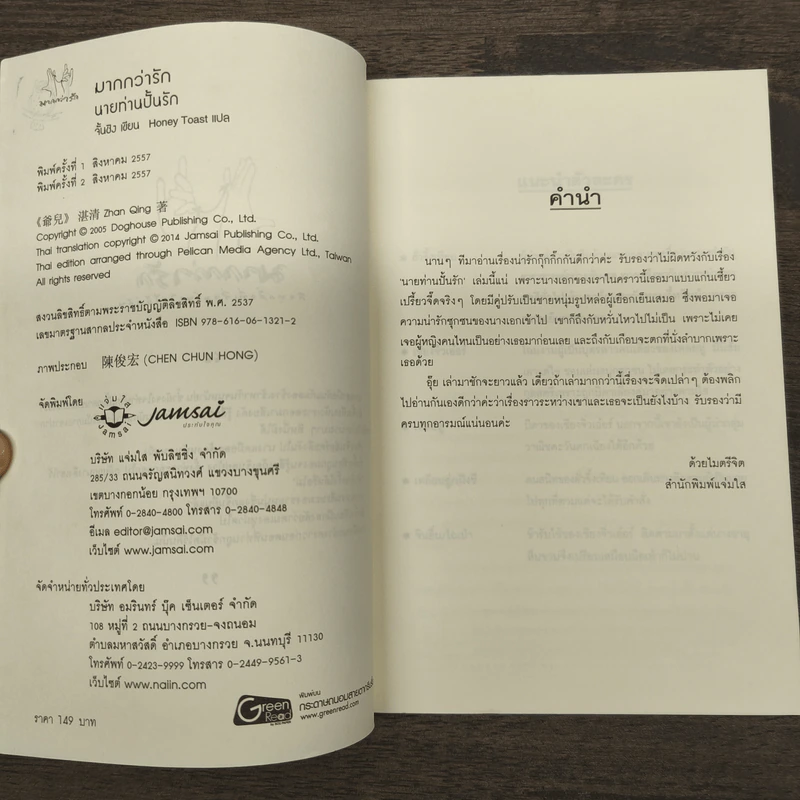 มากกว่ารัก
มากกว่ารัก
นายท่านปั้นรัก
จั้นชิง เขียน Honey Toast แปล
พิมพ์ครั้งที่ 1 สิงหาคม 2557
พิมพ์ครั้งที่ 2 สิงหาคม 2557
《爺兒》 湛清 Zhan Qing 著
Copyright © 2005 Doghouse Publishing Co., Ltd.
Thai translation copyright © 2014 Jamsai Publishing Co., Ltd.
Thai edition arranged through Pelican Media Agency Ltd., Taiwan
All rights reserved
สงวนลิขสิทธิ์ตามพระราชบัญญัติลิขสิทธิ์ พ.ศ. 2537
เลขมาตรฐานสากลประจำหนังสือ ISBN 978-616-06-1321-2
ภาพประกอบ 陳俊宏 (CHEN CHUN HONG)
จัดพิมพ์โดย
แจ่มใส
JAMSAI
Jamsai
ประทับใจคุณ
บริษัท แจ่มใส พับลิชชิ่ง จำกัด
285/33 ถนนจรัญสนิทวงศ์ แขวงบางขุนศรี
เขตบางกอกน้อย กรุงเทพฯ 10700
โทรศัพท์ 0-2840-4800 โทรสาร 0-2840-4848
อีเมล editor@jamsai.com
เว็บไซต์ www.jamsai.com
จัดจำหน่ายทั่วประเทศโดย
บริษัท อมรินทร์ บุ๊ค เซ็นเตอร์ จำกัด
108 หมู่ที่ 2 ถนนบางกรวย-จงถนอม
ตำบลมหาสวัสดิ์ อำเภอบางกรวย จ.นนทบุรี 11130
โทรศัพท์ 0-2423-9999 โทรสาร 0-2449-9561-3
เว็บไซต์ www.naiin.com
ราคา 149 บาท
Green
Read
พิมพ์บน
กระดาษถนอมสายตากรีนรี้ด
www.greenread.com
คำนำ
นานๆ ทีมาอ่านเรื่องน่ารักกุ๊กกิ๊กกันดีกว่าค่ะ รับรองว่าไม่ผิดหวังกับเรื่อง
'นายท่านปั้นรัก' เล่มนี้แน่ เพราะนางเอกของเราในคราวนี้เธอมาแบบแก่นเซี้ยว
เปรี้ยวจี๊ดจริงๆ โดยมีคู่ปรับเป็นชายหนุ่มรูปหล่อผู้เยือกเย็นเสมอ ซึ่งพอมาเจอ
ความน่ารักซุกซนของนางเอกเข้าไป เขาก็ถึงกับหวั่นไหวไปไม่เป็น เพราะไม่เคย
เจอผู้หญิงคนไหนเป็นอย่างเธอมาก่อนเลย และถึงกับเกือบจะตกที่นั่งลำบากเพราะ
เธอด้วย
อุ๊ย เล่ามาชักจะยาวแล้ว เดี๋ยวถ้าเล่ามากกว่านี้เรื่องจะจืดเปล่าๆ ต้องพลิก
ไปอ่านกันเองดีกว่าค่ะว่าเรื่องราวระหว่างเขาและเธอจะเป็นยังไงบ้าง รับรองว่ามี
ครบทุกอารมณ์แน่นอนค่ะ
ด้วยไมตรีจิต
สำนักพิมพ์แจ่มใส